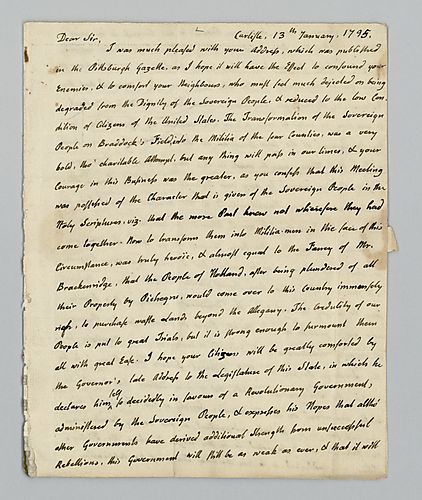 Carlisle, 13th January, 1795.
Dear Sir,
I was much pleased with your Address, which was published
in the Pittsburgh Gazette, as I hope it will have the Effect to confound your
Enemies, & to comfort your Neighbours, who must feel much dejected on being
degraded from the Dignity of the Sovereign People, & reduced to the low Con-
dition of Citizens of the United States. The Transformation of the Sovereign
People on Braddock's Field, into the Militia of the four Counties, was a very
bold, tho' charitable Attempt, but any thing will pass in our times, & your
Courage in this Business was the greater, as you confess that this Meeting
was possessed of the Character that is given of the Sovereign People in the
Holy Scriptures, viz. that the more Part knew not wherefore they had
come together. Now to transform them into Militia-men in the face of this
Circumstance, was truly heroic, & almost equal to the Fancy of Mr.
Brackenridge, that the People of Holland, after being plundered of all
their Property by Pichegru, would come over to this Country immensely
rich, to purchase waste Lands beyond the Allegany. The Credulity of our
People is put to great Trials, but it is strong enough to surmount them
all with great Ease. I hope your Citizens will be greatly comforted by
the Governor's late Address to the Legislature of this State, in which he
declares himself so decidedly in favour of a Revolutionary Government,
administered by the Sovereign People, & expresses his Hopes that altho'
other Governments have derived additional Strength from unsuccessful
Rebellions, this Government will still be as weak as ever, & that it will